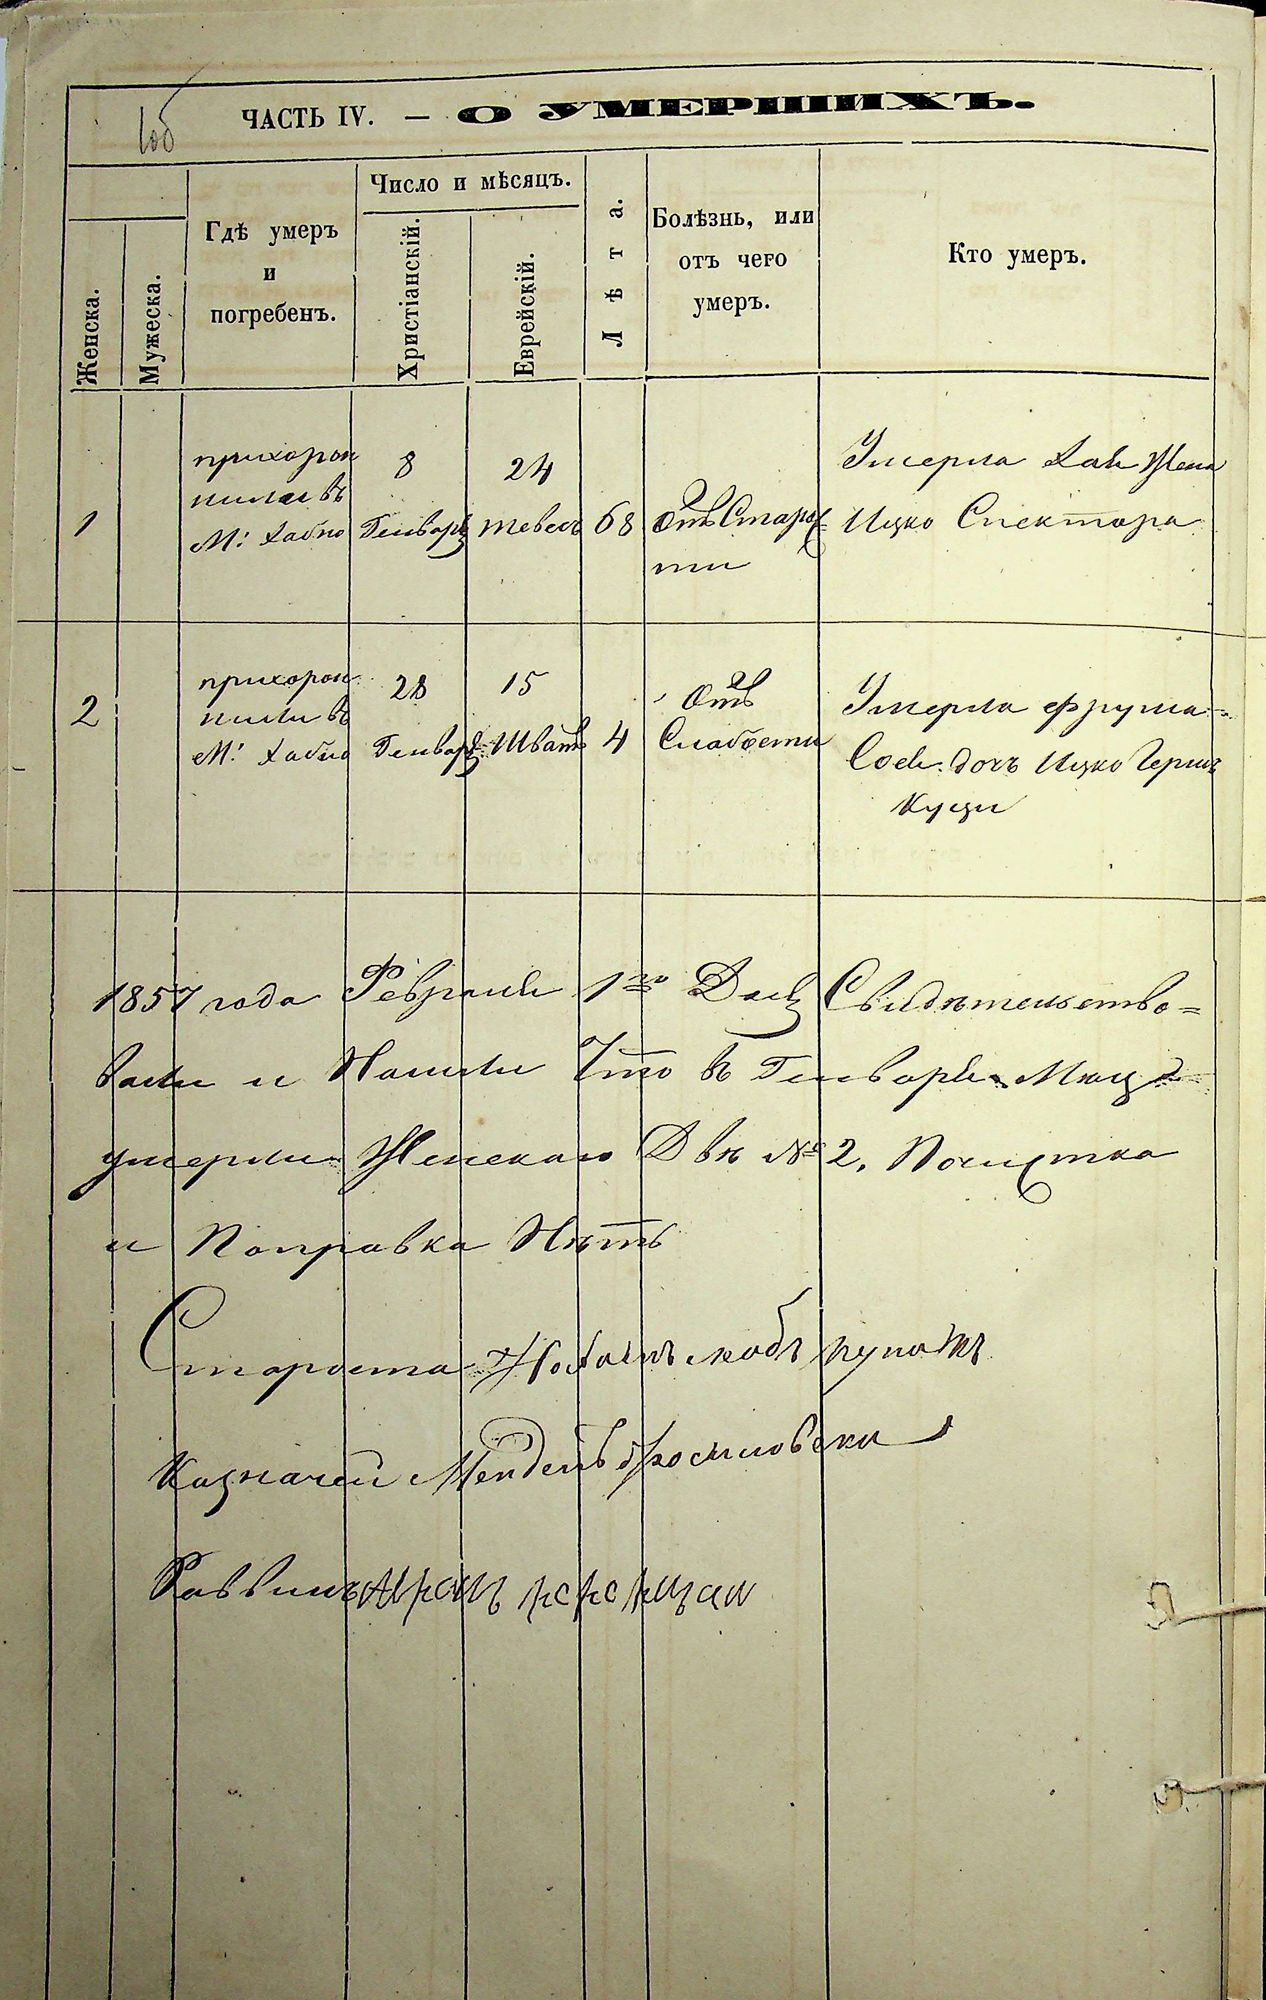 1об
ЧАСТЬ IV. — О УМЕРШИХЪ.
Женска.
Мужеска.
Гдѣ умеръ
и
погребенъ.
Число и мѣсяцъ.
Христіанскій.
Еврейскій.
Лѣта.
Болѣзнь, или
отъ чего
умеръ.
Кто умеръ.
1
прихорон
нили въ
М: Хабно
8
Генваря
24
тевесъ
68
отъ Старос
ти
Умерла Хая Жена
Ицко Спектора
2
прихорон
нили въ
М: Хабно
28
Генваря
15
Шватъ
4
отъ
Слабости
Умерла Фрума
Сося дочъ Ицко Герша
Куци
1857 года Февраля 1го Дня Свидѣтельство=
вали и Нашли Что въ Генваря Мца
умерли Женскаго Двѣ № 2, Почистка
и Поправка Нѣтъ
Староста
Казначей Мендель
Раввинъ